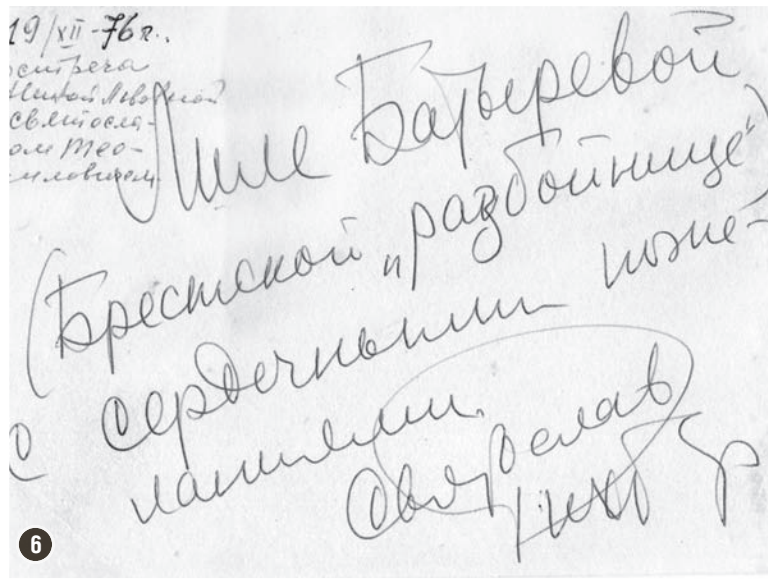 19/XII-76г..
встреча
Ниной Львовной
Святосла-
ом Тео-
иловичем
Лиле Батыревой
(Брестской „разбойнице")
с сердечными поже-
ланиями
Святослав
Рихтер
6